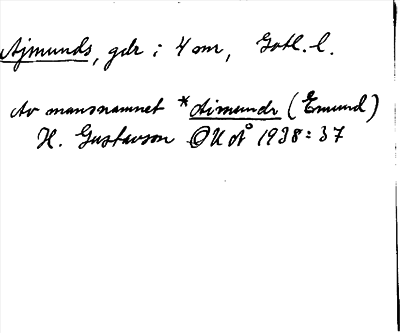 Ajmunds, gdr i 4 snr, Gotl. l.
Av mansnamnet *Aimundr (Emund)
H. Gustavson OUÅ 1938:37